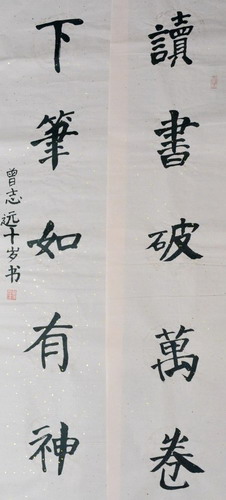 讀書破萬卷
下筆如有神
曾志远十岁书